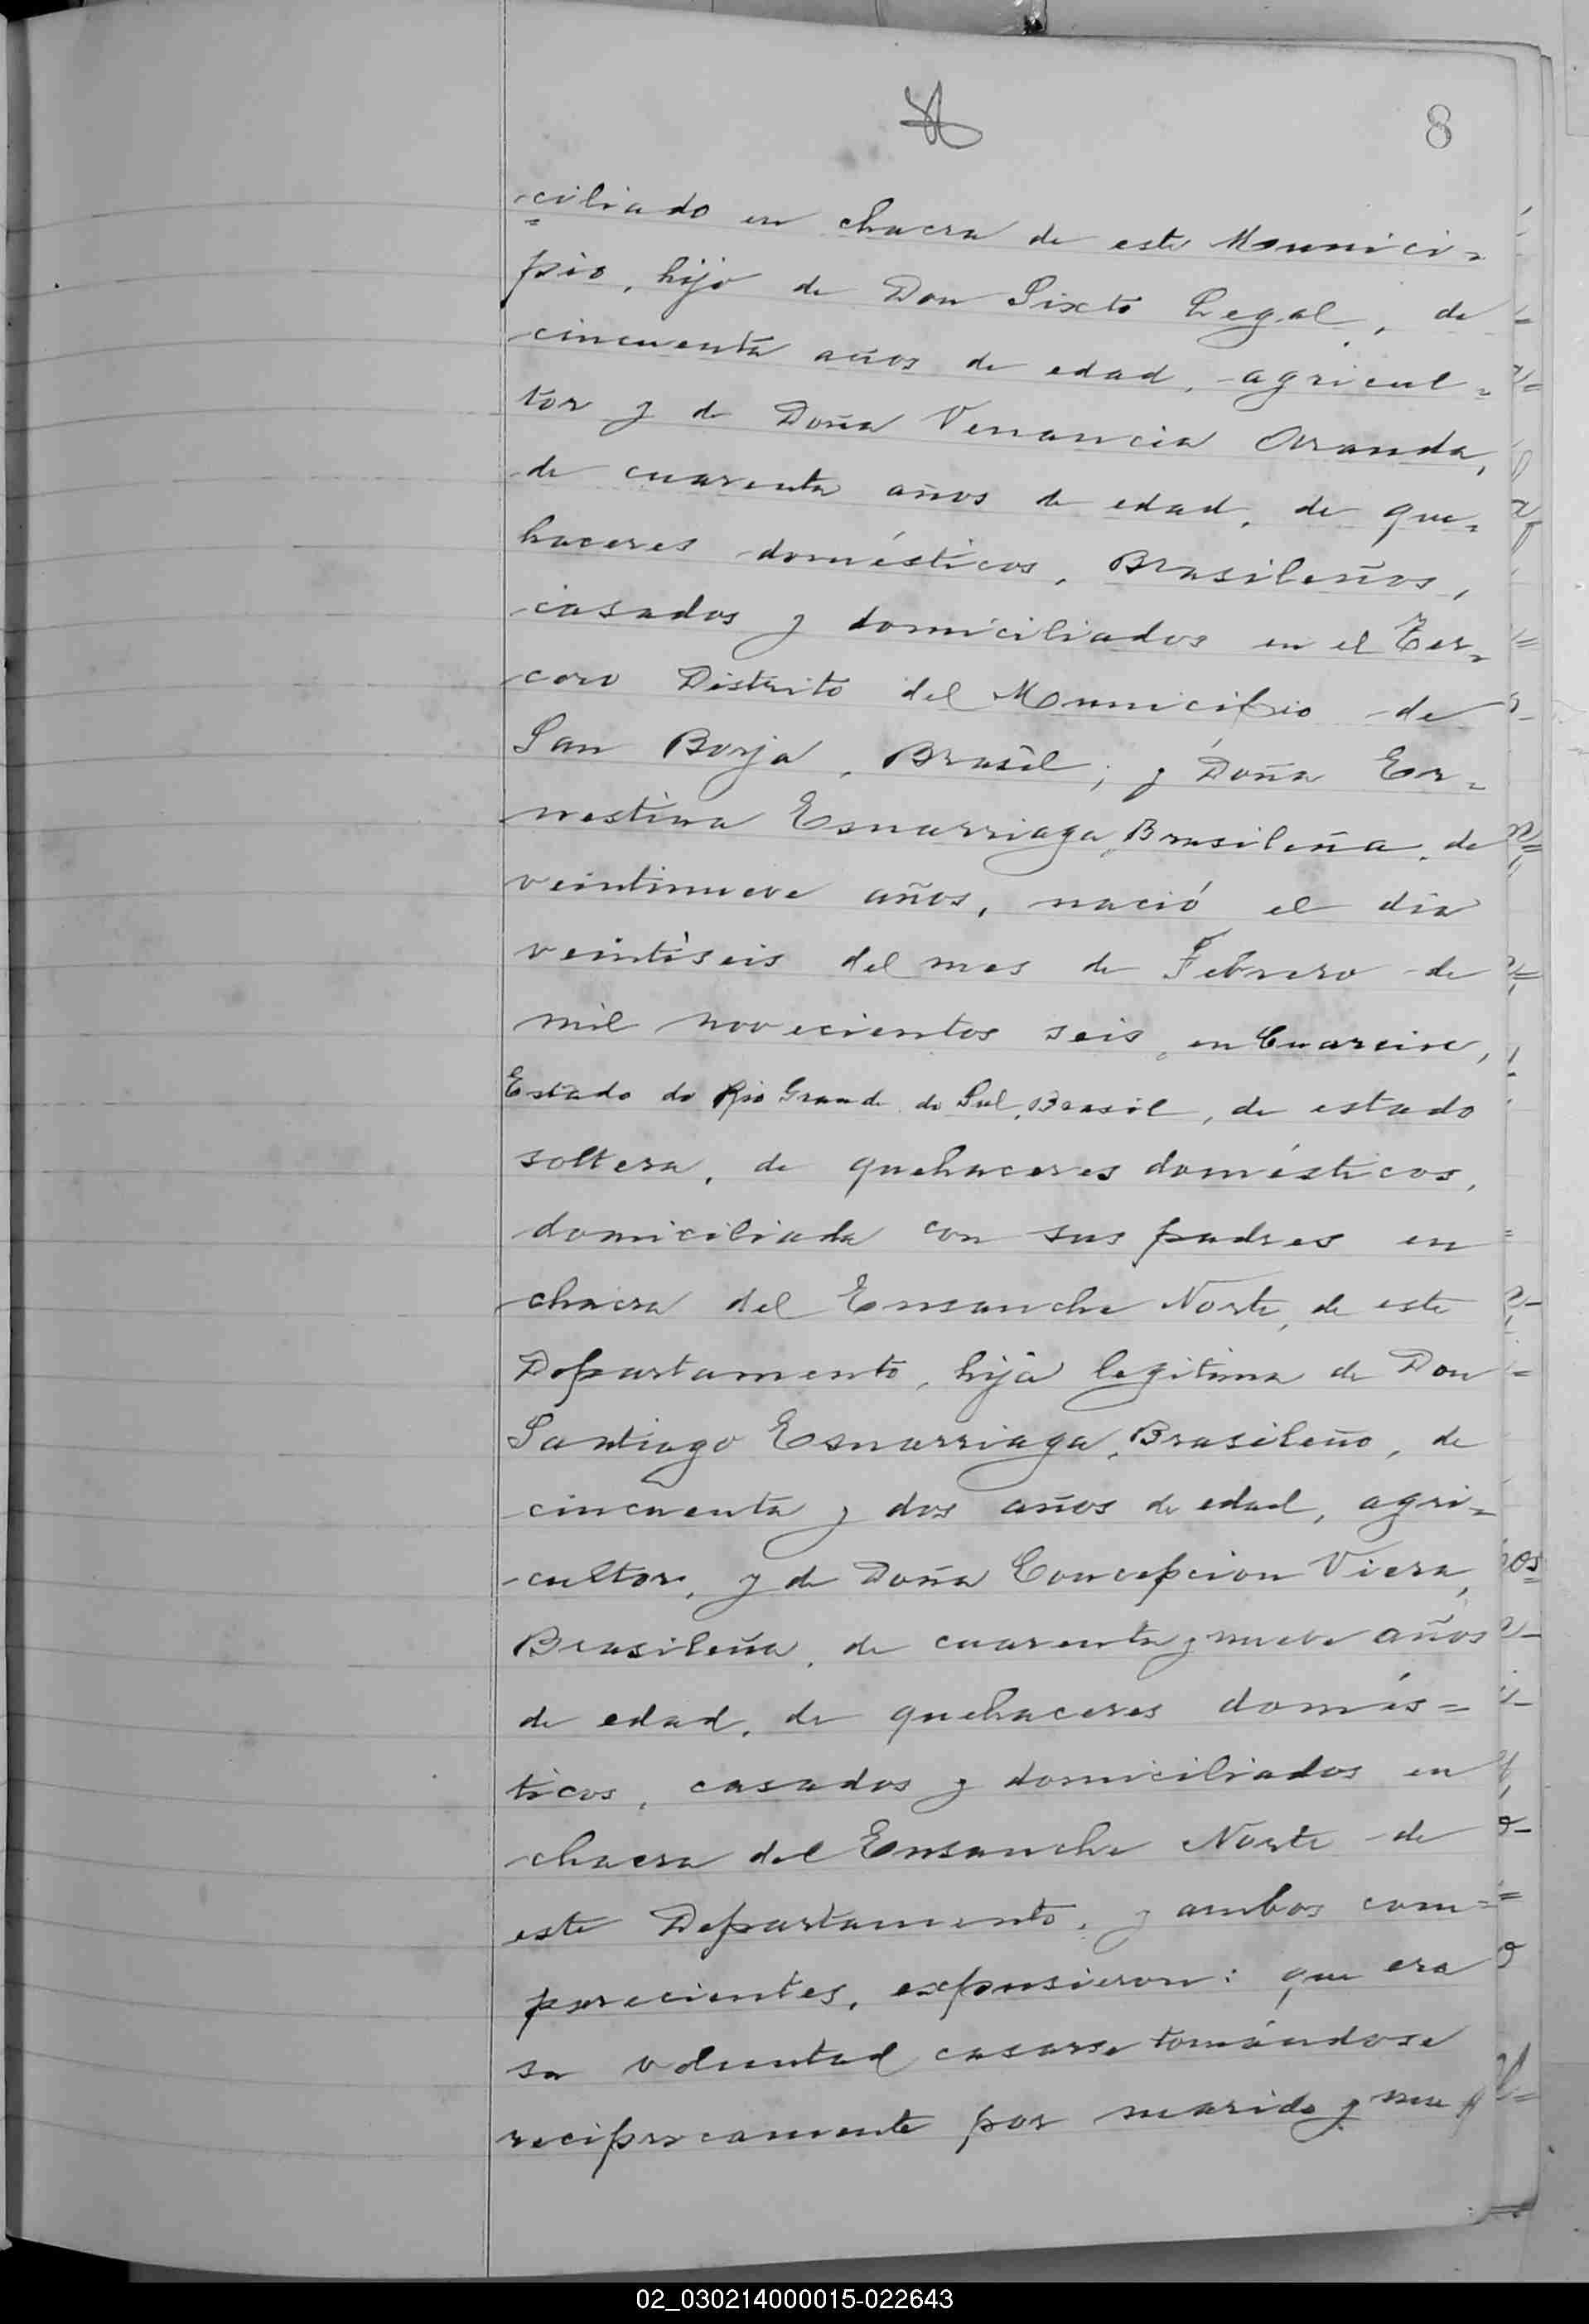 8
-ciliado en chacra de este Munici=
pio, hijo de Don Sixto Legal, de
cincuenta años de edad, agricul=
tor y de Doña Venancia Aranda,
de cuarenta años de edad, de que=
haceres domésticos, Brasileños,
casados y domiciliados en el Ter=
cero Distrito del Municipio de
San Borja, Brasil; y Doña Er=
nestina Esnarriaga, Brasileña, de
veintinueve años, nació el día
veintiseis del mes de Febrero de
mil novecientos seis, en Cuareim,
Estado do Rio Grande do Sul, Brasil, de estado
soltera, de quehaceres domésticos,
domiciliada con sus padres en
chacra del Ensanche Norte, de este
Departamento, hija legitima de Don
Santiago Esnarriaga, Brasileño, de
cincuenta y dos años de edad, agri=
cultor, y de Doña Concepcion Viera,
Brasileña, de cuarenta y nueve años
de edad, de quehaceres domés=
ticos, casados y domiciliados en
chacra del Ensanche Norte de
este Departamento, y ambos com=
parecientes, expusieron: que era
su voluntad casarse tomándose
reciprocamente por marido y mu
02_030214000015-022643